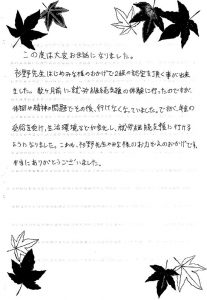 この度は大変お世話になりました。
杉野先生はじめみな様のおかげで2級の認定を頂く事が出来
ました。数ヶ月前に就労継続支援の体験に行ったのですが、
体調や精神の問題でその後、行けなくなっていました。で
受給を受け、生活環境などが変化し、就労継続支援に行ける
ようになりました。これも、杉野先生やみな様のお力ぞえのおかげです。
本当にありがとうございました。